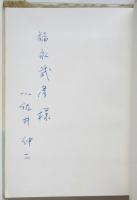 福永武彦様
佐井伸二